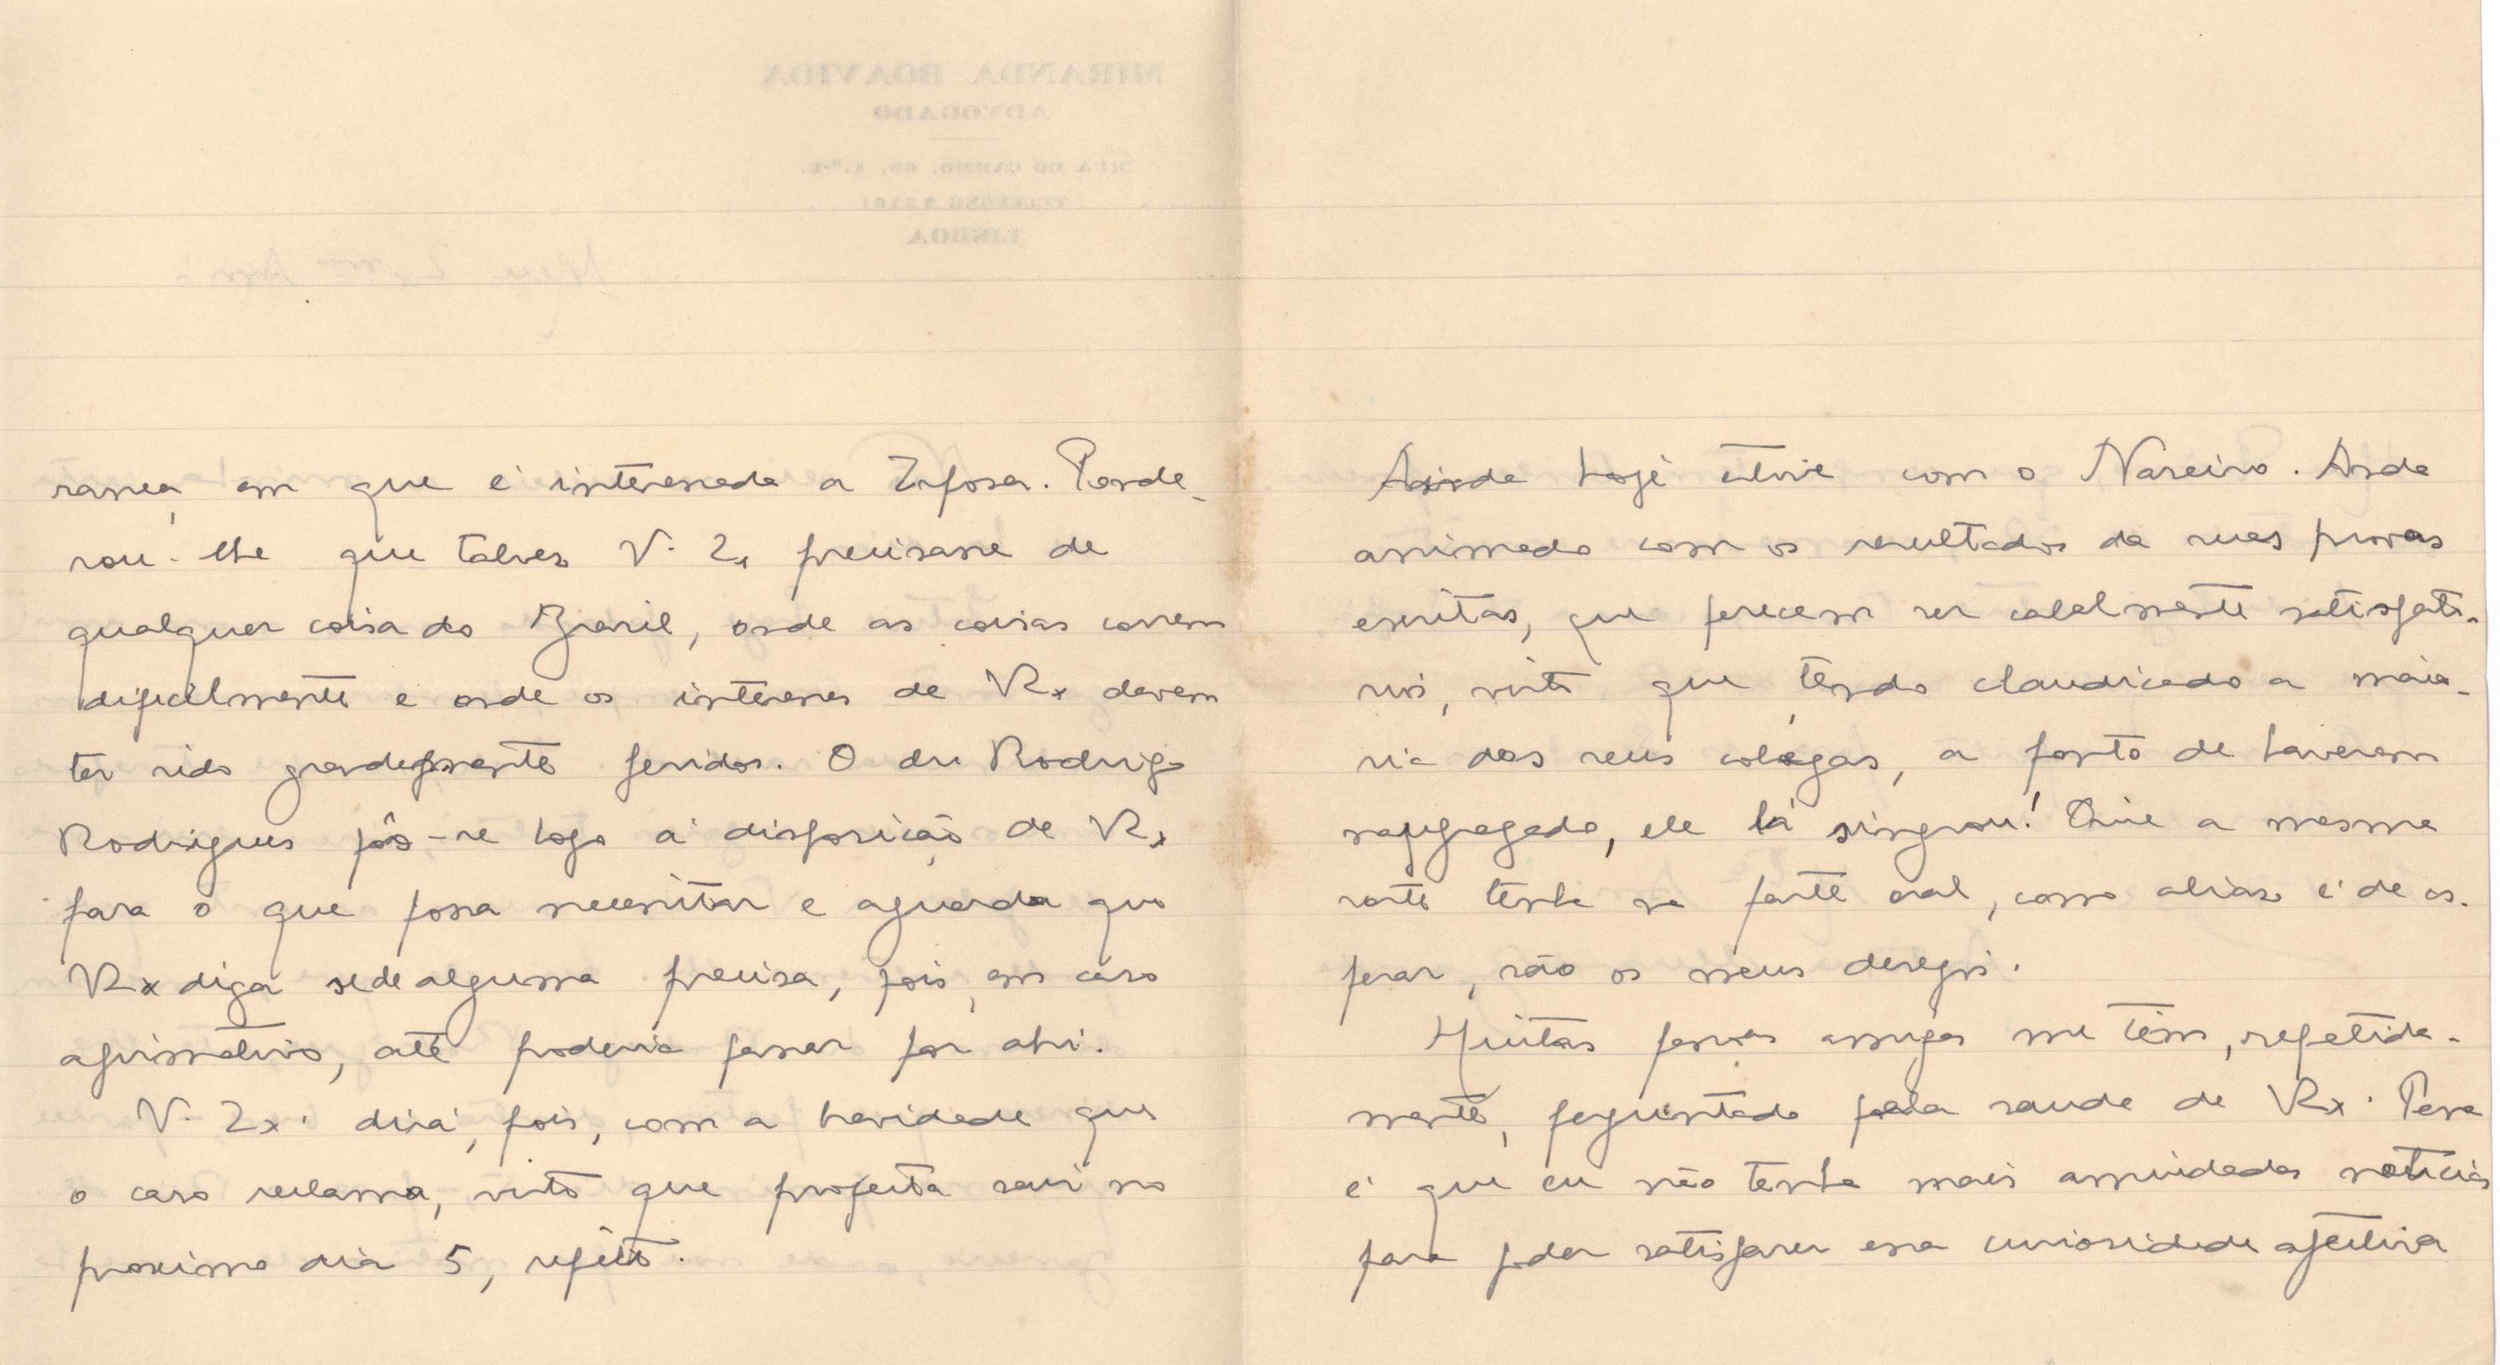 rança, em que é interessada a Esposa. Ponde-
rou-lhe que talvez V. Ex precisasse de
qualquer coisa do Brasil, onde as coisas correm
dificilmente e onde os interesses de V Ex devem
ter sido grandemente feridos. O dr Rodrigo
Rodrigues pôs-se logo á disposição de V Ex
para o que possa necessitar e aguarda que
V Ex diga se de alguma precisa, pois, em caso
afirmativo, até poderia passar por ahi.
V. Ex. dirá, pois, com a brevidade que
o caso reclama, visto que projecta sair no
proximo dia 5, repito.
Ainda hoje estive com o Nazeiro. Anda
animado com os resultados da suas provas
escritas, que parecem ser cabalmente satisfató-
rios, visto que, tendo claudicado a maio-
ria dos seus colegas, a ponto de haverem
naufragado, ele lá singrou! Que a mesma
sorte tenha na parte oral, como aliaz é de es-
perar, são os meus desejos.
Muitas pessoas amigas me têm, repetida-
mente, preguntado pela saude de V Ex. Pena
é que eu não tenha mais amiudadas noticias
para poder satisfazer essa curiosidade afectiva
MIRANDA BOAVIDA
ADVOGADO
LISBOA